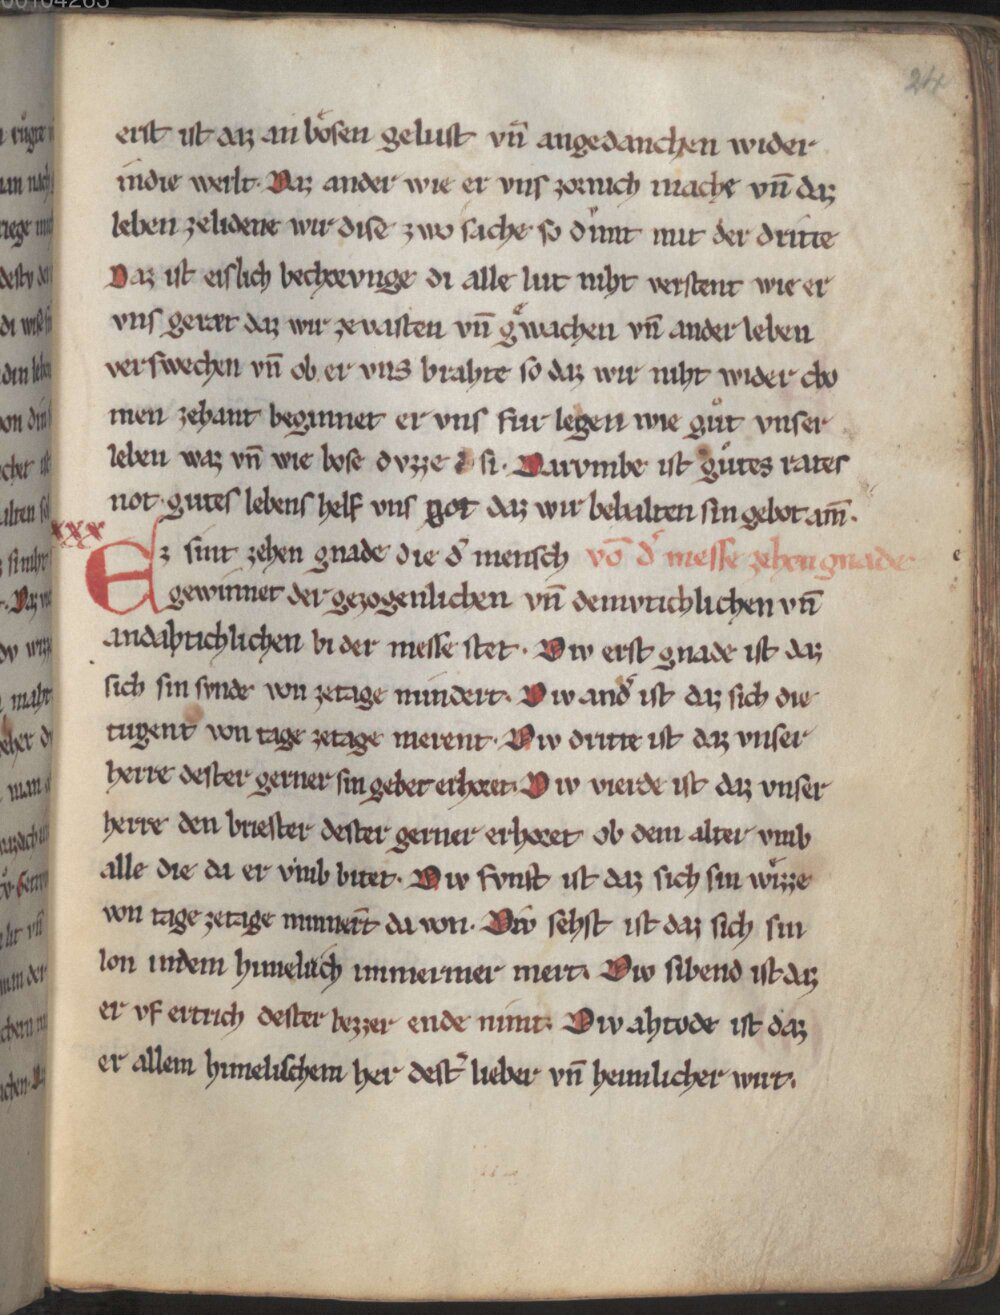 24
erst ist daz an bosen gelust vn̄ angedanchen wider
indie werlt. Daz ander wie er vns zornich mache vn̄ daz
leben zelidene wir dise zwo sache so
mit der dritte
Daz ist eislich bechorvnge di alle lut niht verstent wie er
vns geræt daz wir zevasten vn̄ gͤwachen vn̄ ander leben
verswechen vn̄ ob er vns brahte so daz wir niht wider cho
men zehant beginnet er vns fur legen wie gůt vnser
leben waz vn̄ wie bose dvzze si. Darvmbe ist gůtes rates
not. gutes lebens helf vns got daz wir behalten sin gebot am̄.
xxx
Ez sint zehen gnade die d᾽ mensch vō d᾽ messe zehen gnade
gewinnet der gezogenlichen vn̄ demvtichlichen vn̄
andahtichlichen bi der messe stet. Div erst gnade ist daz
sich sin svnde von zetage mindert. Div and᾽ ist daz sich die
tugent von tage zetage merent. Div dritte ist daz vnser
herre dester gerner sin gebet erhoret. Div vierde ist daz vnser
herre den briester dester gerner erhoret ob dem alter vmb
alle die da er vmb bitet. Div fvnft ist daz sich sin wizze
von tage zetage
da von. Div sehst ist daz sich sin
lon indem himelrich immermer mert. Div sibend ist daz
er vf ertrich dester bezzer ende nimt. Div ahtode ist daz
er allem himelischem her dest᾽ lieber vn̄ heimlicher wirt.